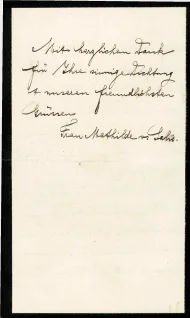 Mit herzlichem Dank
für Ihre sinnige Dichtung
u unseren freundlichsten
Grüssen
Frau Mathilde v.